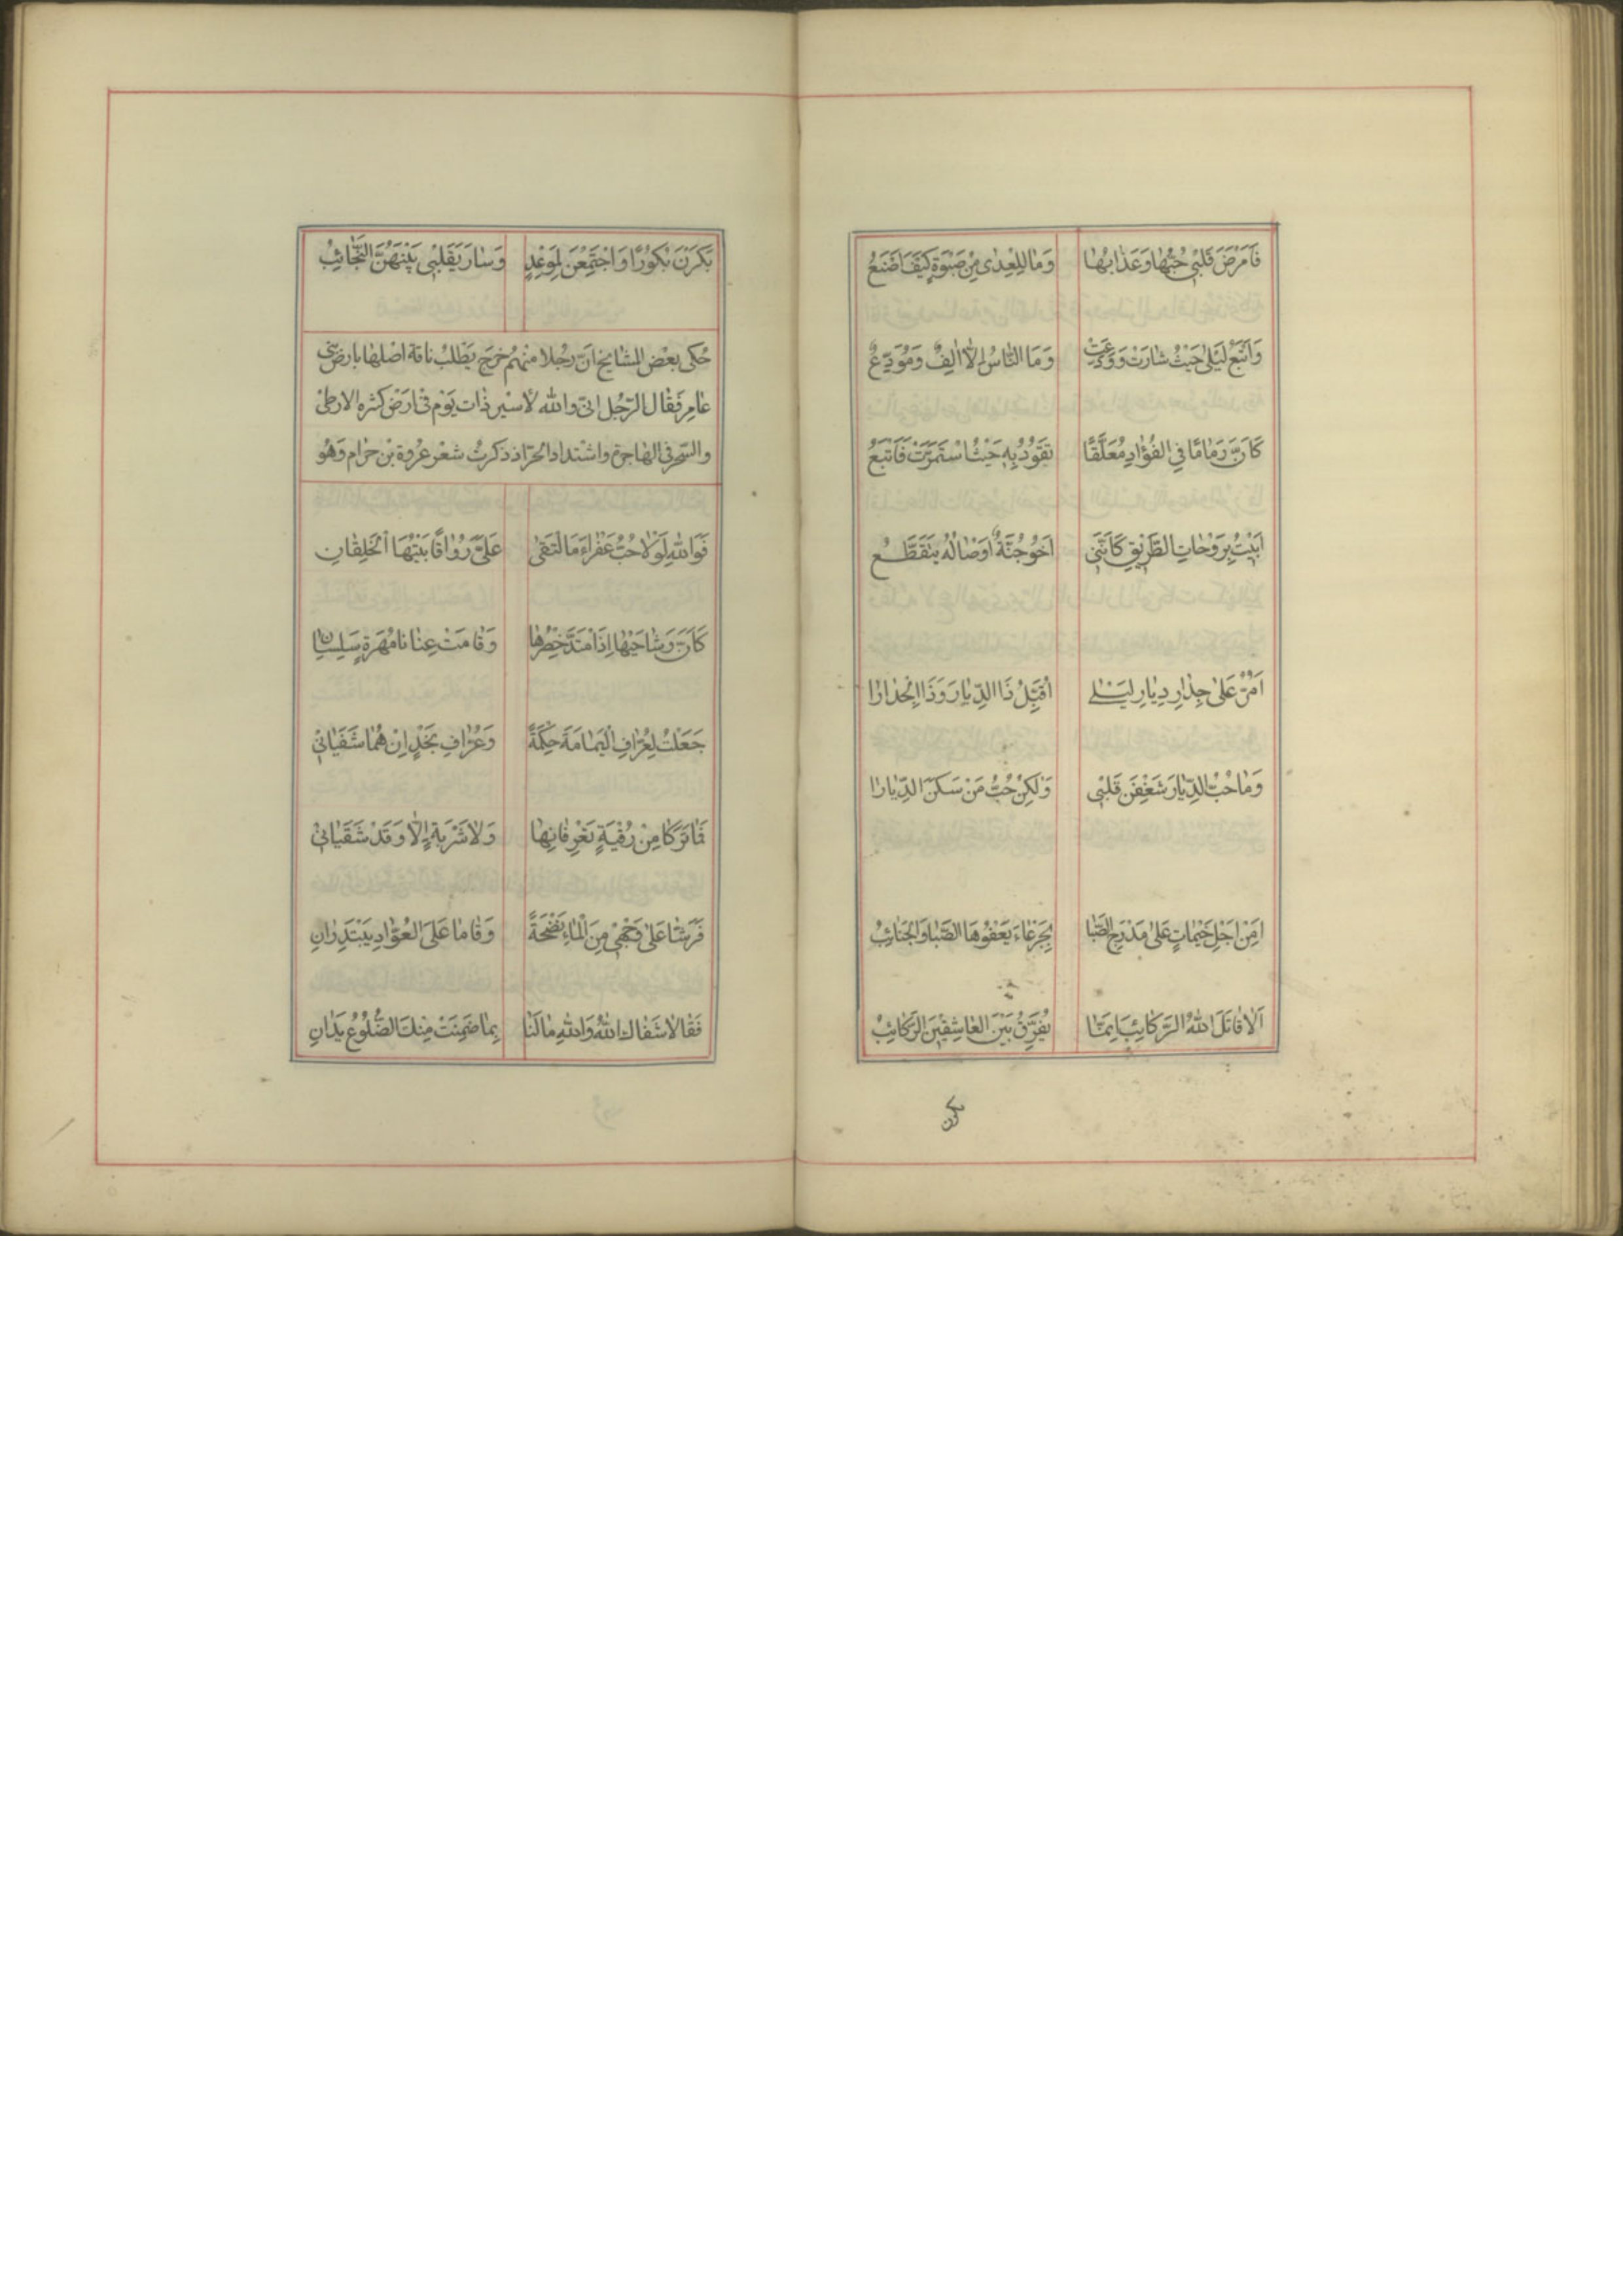 فَاَمْرَضَ قَلْبْی حُبُّهٰا وَعَذٰابُهٰا وَمٰا لِلْعِدٰی مِنْ صَبْوَةٍ كَيْفَ اَصْنَعُ
وَاَتْبَعُ لَيْلٰی حَيْثُ سٰارَتْ وَوَدَّعَتْ وَمَا النّٰاسُ اِلّٰا اٰلِفٌ وَمُوَدِّعٌ
كَاَنَّ زِمٰامًا فِی الفُؤٰادِ مُعَلَّقًا تَقُوْدُ بِهِ حَيْثُ اسْتَمَرَّتْ فَاَتْبَعُ
اَبِيْتُ بِرَوْحٰاتِ الطَّرِيْقِ كَاَنَّنِی اَخُوْ جُنَّةٌ اَوْصٰالُهُ يتَقَطَّعُ
اَمُرُّ عَلٰی جِدٰارِ دِيٰارِ لَيْلٰی اُقَبِّلُ ذَا الدِّيٰارَ وَذَا الجِدٰارٰا
وَمٰا حُبُّ الدِّيٰارِ شَغَفْنَ قَلْبْی وَلٰكِنْ حُبُّ مَنْ سَكَنَ الدِّيٰارٰا
اَمِنْ اَجْلِ خَيْمٰاتٍ عَلٰی مَدْرَجِ الصَّبٰا بِجَرْعٰاءَ يَعْفُوْهَا الصَّبٰا وَالجَنٰائِبُ
اَلٰا قٰاتَلَ اللّٰهُ الرَّكٰائِبَ اِنَّمٰا يُفَرِّقُ بَيْنَ العٰاشِقِيْنَ الرَّكٰائِبُ
بكرن
بَكَرْنَ بُكُوْرًا وَاجْتَمَعْنَ لِمَوْعِدٍ وَسٰارَ بِقَلْبْی بَيْنَهُنَّ النَّجٰائِبُ
حُكی بعْض المشٰايخ انّ رجُلا منْهُم خرَج يَطْلبُ ناقة اضلهٰا بارض بنی
عٰامِر فَقٰال الرّجُل انّی والله لأسْير ذٰات يَوْم فی ارَضٍ كثره الارطیٰ
والسّحر فی الهٰاجرة واشْتداد الحرّ اذ ذكرتُ شعْر عُروة بْن حزٰام وَهُو
فَوَاللّٰهِ لَوْلٰا حُبُّ عَفْرٰاءَ مَا الْتَقٰی عَلَیَّ رُوٰاقٰا بَيْتُهَا الْخَلِقٰانِ
كَاَنَّ وِشٰاحَيْهٰا اِذَا امْتَدَّ خَصْرُهٰا وَقٰامَتْ عِنٰانٰا مُهْرَةٍ سَلِسٰانِ
جَعَلْتُ لِعَرّٰافِ الْيَمٰامَةِ حُكْمَهُ وَعَرّٰافِ نَجْدٍ اِنْ هُمٰا شَفَيٰانِیْ
فَمٰا تَرَكٰا مِنْ رُقْيَةٍ يَعْرِفٰانِهٰا وَلٰا شَرْبَةٍ اِلّٰا وَقَدْ سَقَيٰانِیْ
فَرَشّٰا عَلٰی وَجْهِیْ مِنَ الْمٰاءِ نَضْحَةً وَقٰامٰا عَلَی العُوّٰادِ يَبْتَدِرٰانِ
فَقٰالٰا شَفٰاكَ اللّٰهُ وَاللّٰهِ مٰا لَنٰا بِمٰا ضَمِنَتْ مِنْكَ الضُّلُوْعُ يَدٰانِ